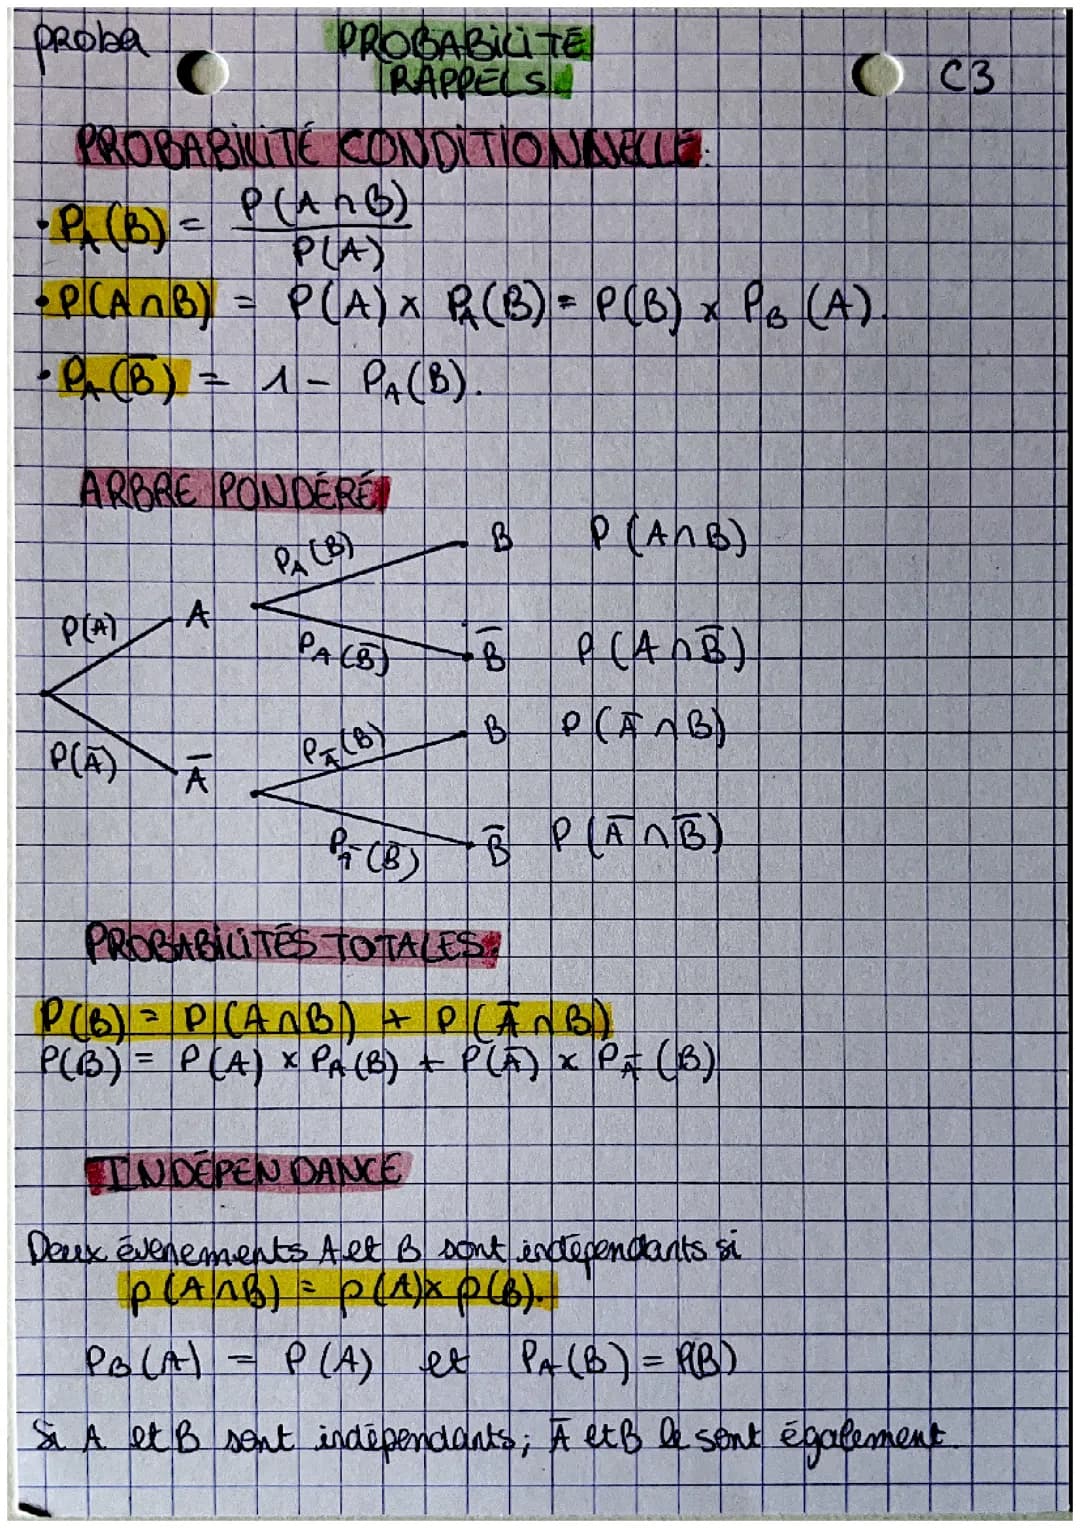 proba
PROBABILITÉ
RAPPELS.
C3
PROBABILITÉ CONDITIONNELLE:
• P_A(B) = P(A∩B) / P(A)
• P(A∩B) = P(A) x P_A(B) = P(B) x P_B(A).
• P_A(B̅) = 1 - P_A(B).
ARBRE PONDÉRÉ
P_A(B) B P(A∩B)
P(A) A
P_A(B̅) B̅ P(A∩B̅)
P(A̅) A̅
P_A̅(B) B P(A̅∩B)
P_A̅(B̅) B̅ P(A̅∩B̅)
PROBABILITÉS TOTALES.
P(B) = P(A∩B) + P(A̅∩B)
P(B) = P(A) x P_A(B) + P(A̅) x P_A̅(B)
INDÉPENDANCE
Deux évenements A et B sont indépendants si
p(A∩B) = p(A) x p(B).
P_B(A) = P(A) et P_A(B) = P(B)
Si A et B sont indépendants; A̅ et B le sont également.